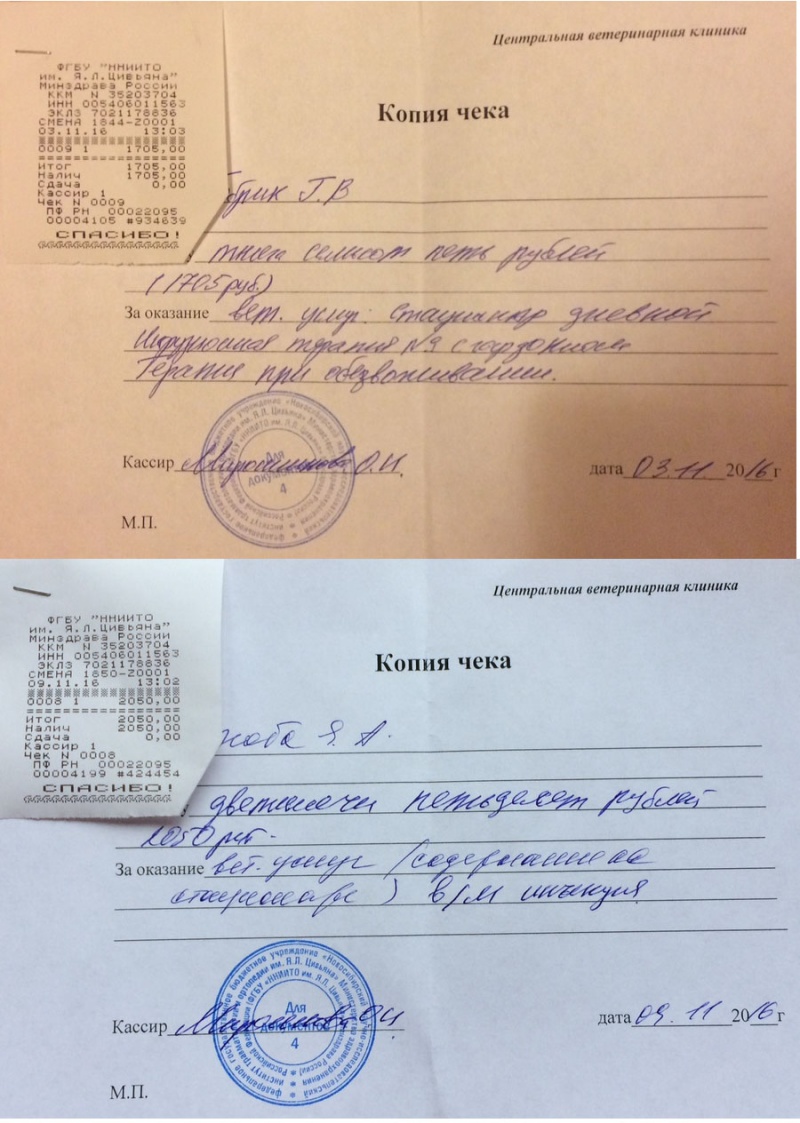 Центральная ветеринарная клиника
ФГБУ "ННИИТО
им. Я.Л.Цивьяна"
Минздрава России
ККМ N 35203704
ИНН 005406011563
ЭКЛЗ 7021178836
СМЕНА 1844-Z0001
03.11.16 13:03
0009 1 1705,00
Итог 1705,00
Налич 1705,00
Сдача 0,00
Кассир 1
Чек N 0009
ПФ РН 00022095
00004105 #934639
СПАСИБО!
Копия чека
брик Г.В
семьсот пять рублей
(1705 руб.)
За оказание вет. услуг: стационар дневной
терапия №3 с
Терапия при обезвоживании.
Кассир О.И.
Для документов
4
дата 03.11 2016 г
М.П.
Центральная ветеринарная клиника
ФГБУ "ННИИТО
им. Я.Л.Цивьяна"
Минздрава России
ККМ N 35203704
ИНН 005406011563
ЭКЛЗ 7021178836
СМЕНА 1850-Z0001
09.11.16 13:02
0008 1 2050,00
Итог 2050,00
Налич 2050,00
Сдача 0,00
Кассир 1
Чек N 0008
ПФ РН 00022095
00004199 #424454
СПАСИБО!
Копия чека
нова Я. А.
две тысячи пятьдесят рублей
2050 руб.
За оказание вет. услуг (содержание на
стационаре) в/м инъекция
Кассир О.И
Для документов
4
дата 09.11 2016 г
М.П.